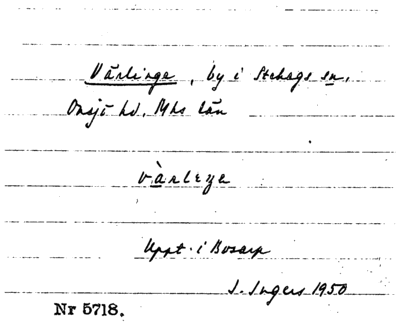 Vårlinge, by i Stehags sn,
Onsjö hd. Mhs län
vàrleŋa
Uppt. i Bosarp
I. Ingers 1950
Nr 5718.